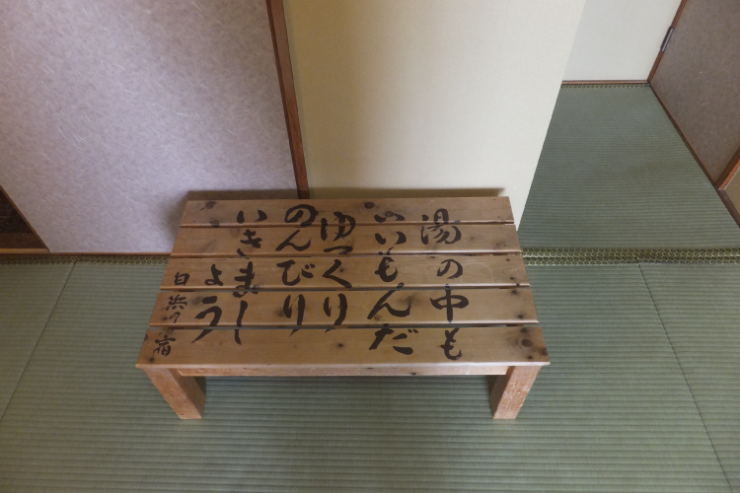 湯の中も
いいもんだ
ゆっくり
のんびり
いきまし
ょう
白浜の宿